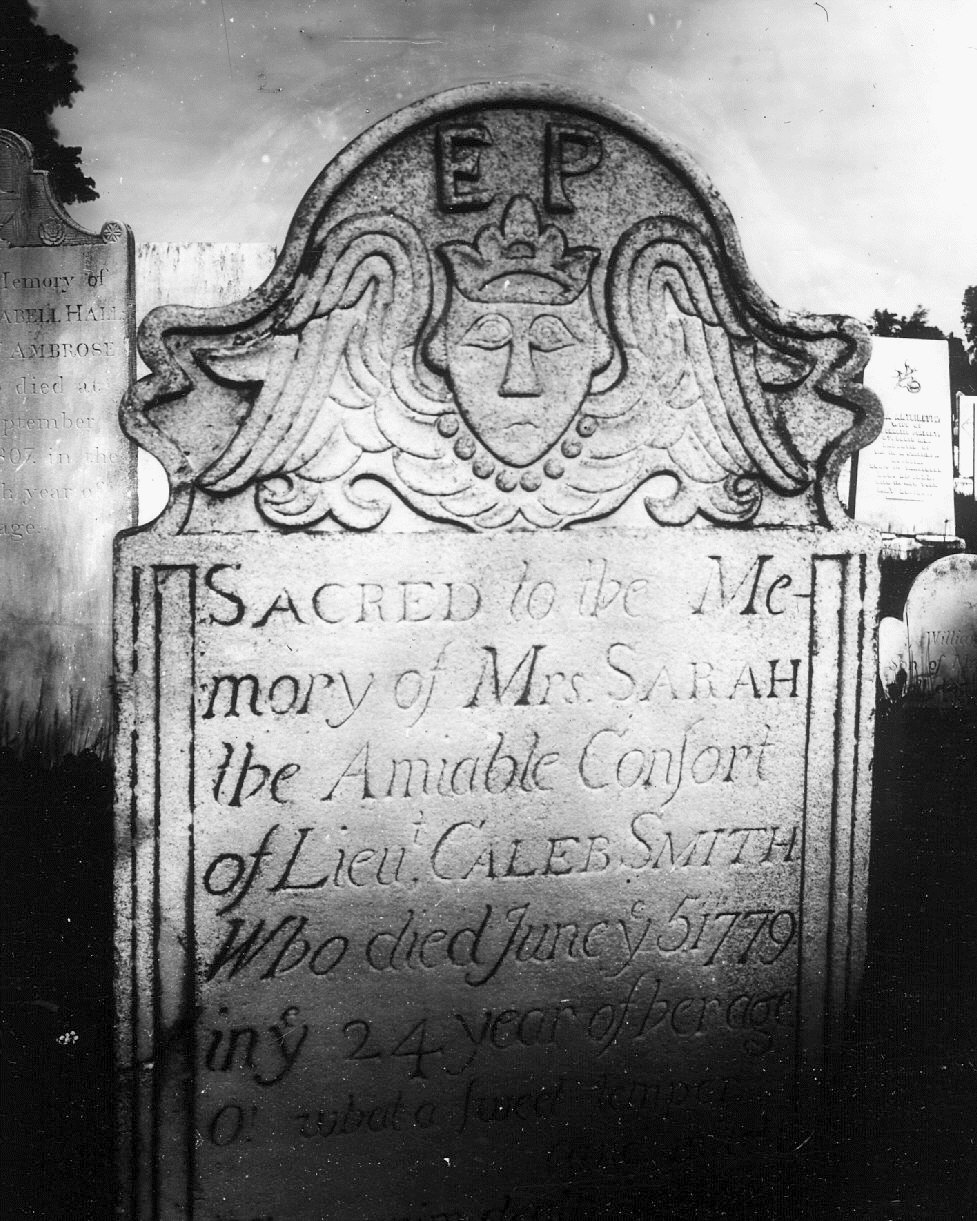 E P
SACRED to the Me-
mory of Mrs. SARAH
the Amiable Conſort
of Lieut. CALEB SMITH
Who died June yͤ 5 1779
in yͤ 24 year of her age
O! what a ſweet temper
Memory of
ABELL HALL
AMBROSE
died at
ptember
807. in the
h year of
age